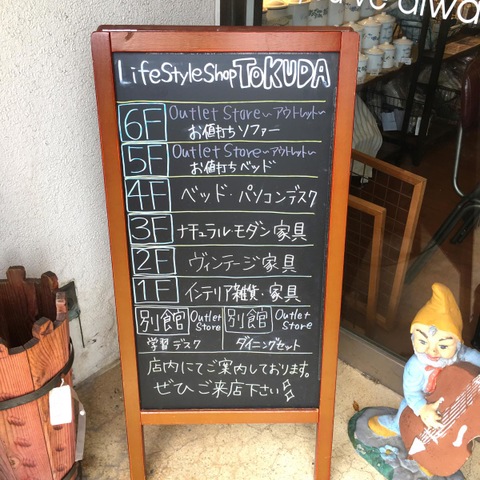 've alwa
LifeStyleShop TOKUDA
6F Outlet Store〜アウトレット〜
お値打ちソファー
5F Outlet Store〜アウトレット〜
お値打ちベッド
4F ベッド・パソコンデスク
3F ナチュラルモダン家具
2F ヴィンテージ家具
1F インテリア雑貨・家具
別館 Outlet Store
学習デスク
別館 Outlet Store
ダイニングセット
店内にてご案内しております。
ぜひご来店下さい!